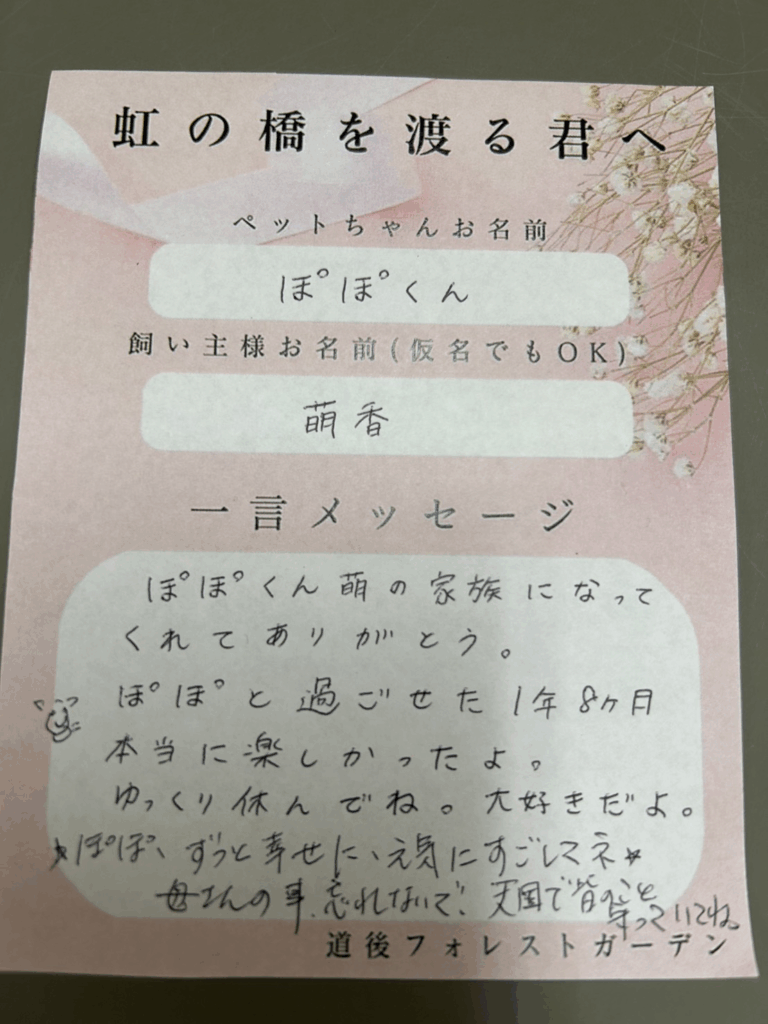 虹の橋を渡る君へ
ペットちゃんお名前
ぽぽくん
飼い主様お名前(仮名でもOK)
萌香
一言メッセージ
ぽぽくん萌の家族になって
くれてありがとう。
ぽぽと過ごせた1年8ヶ月
本当に楽しかったよ。
ゆっくり休んでね。大好きだよ。
★ぽぽ、ずっと幸せに、元気にすごしてネ★
母さんの事、忘れないで、天国で皆の
守っていてね。
道後フォレストガーデン